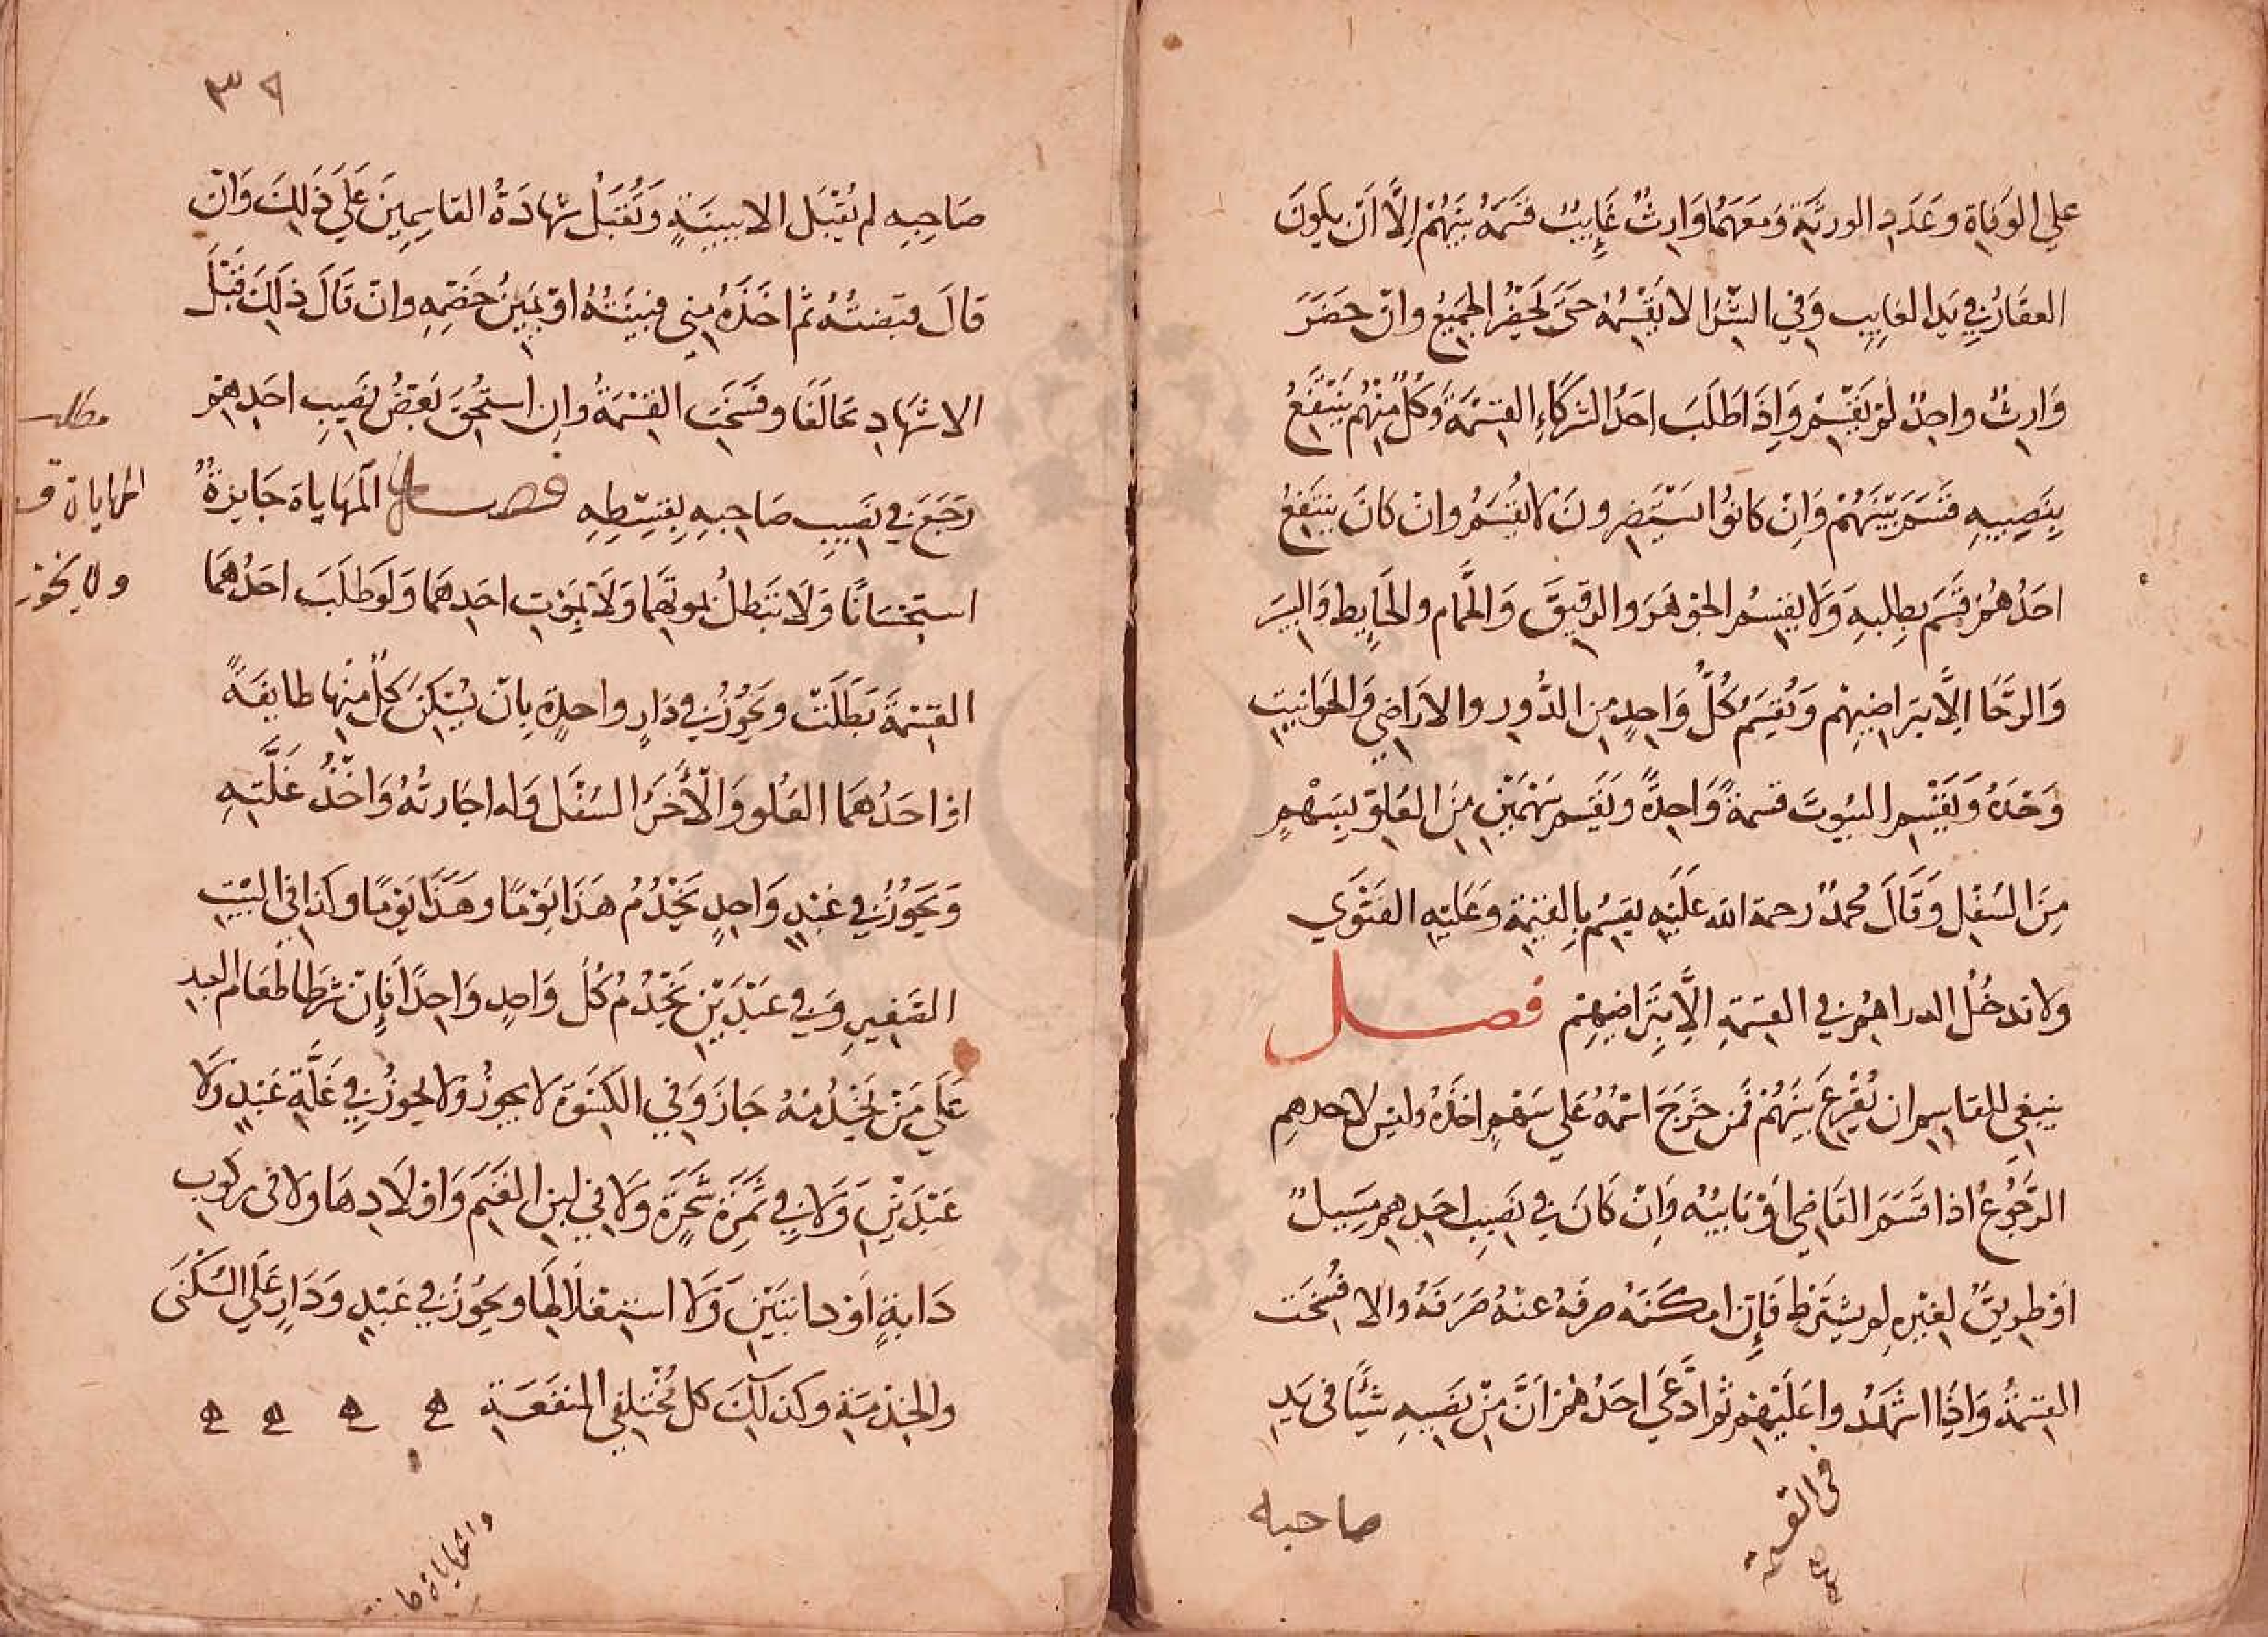 علي الوفاة وعدد الورثة ومعهما وارث غايب قسمه بينهم الا ان يكون
العقار في يد الغايب وفي الشرا لا يقسمه حتى يحضر الجميع وان حضر
وارث واحد لم يقسم واذا طلب احد الشركاء القسمة وكل منهم ينتفع
بنصيبه قسم بينهم وان كانوا يستضرون لا يقسم وان كان ينتفع
احدهم قسم بطلبه ولا يقسم الجوهر والرقيق والحمام والحايط والبير
والرحا الا بتراضيهم ويقسم كل واحد من الدور والاراضي والحوانيت
وحده ويقسم البيوت قسمة واحدة ويقسم سهمين من العلو بسهم
من السفل وقال محمد رحمة الله عليه يقسم بالقيمة وعليه الفتوي
ولا تدخل الدراهم في القسمة الا بتراضيهم فصل
ينبغي للقاسم ان يقرع بينهم فمن خرج اسمه علي سهم اخذه وليس لاحدهم
الرجوع اذا قسم القاضي او نايبه وان كان في نصيب احدهم مسيل
او طريق لغيره لم يشترط فان امكنه صرفه عنه صرفه والا فسخت
القسمة واذا اشهدوا عليهم ثم ادعي احدهم ان من نصيبه شيئا في يد
في القسمة
صاحبه
٣٩
صاحبه لم يقبل الا ببينة وتقبل شهادة القاسمين علي ذلك وان
قال قبضته ثم اخذه مني فبينته او يمين خصمه وان قال ذلك قبل
الاشهاد تحالفا وفسخت القسمة وان استحق بعض نصيب احدهم
رجع في نصيب صاحبه بقسطه فصل المهاياة جايزة
استحسانا ولا تبطل بموتهما ولا بموت احدهما ولو طلب احدهما
القسمة بطلت ويجوز في دار واحدة بان يسكن كل منها طايفة
او احدهما العلو والاخر السفل وله اجارته واخذ غلته
ويجوز في عبد واحد يخدم هذا يوما وهذا يوما وكذا في البيت
الصغير وفي عبدين يخدم كل واحد واحدا فان شرطا طعام العبد
علي من يخدمه جاز وفي الكسوة لا يجوز ولا يجوز في غلة عبد ولا
عبدين ولا في ثمرة شجرة ولا في لبن الغنم واولادها ولا في ركوب
دابة او دابتين ولا استغلالها ويجوز في عبد ودار علي السكنى
والخدمة وكذلك كل مختلفي المنفعة
مطلب
المهاياة
ولا يجوز
والمهاياة